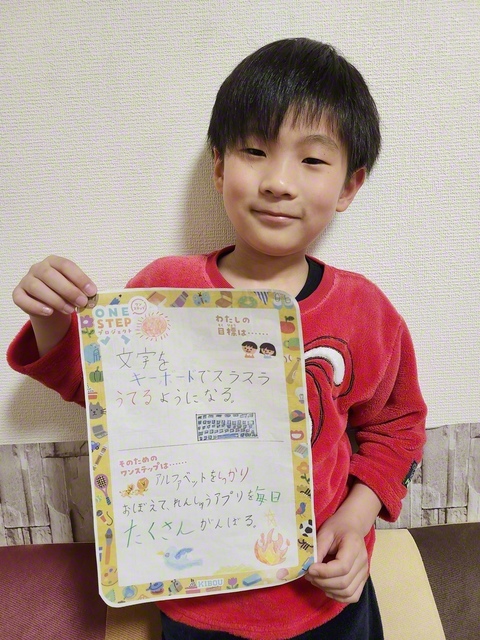 ONE
STEP
プロジェクト
わたしの
目標は……
文字を
キーボードでスラスラ
うてるようになる。
そのための
ワンステップは……
アルファベットをしっかり
おぼえて、れんしゅうアプリを毎日
たくさんがんばる。
KIBOU